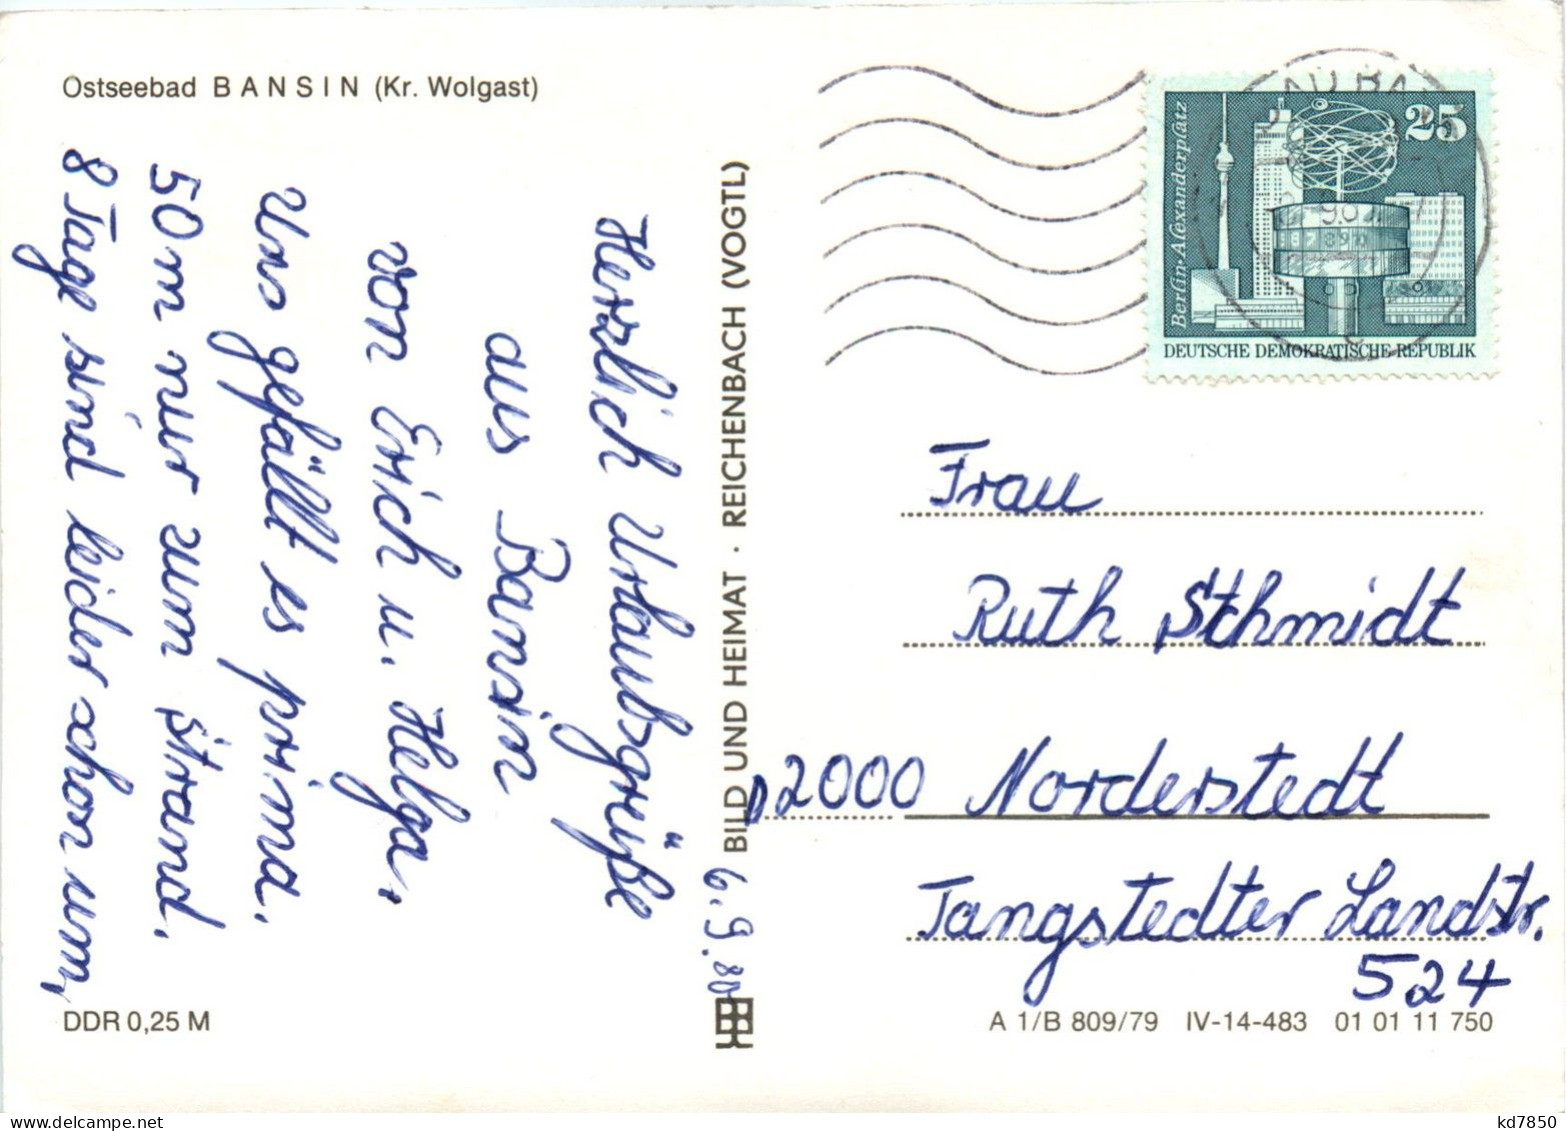 Ostseebad BANSIN (Kr. Wolgast)
6.9.80
Herzlich Urlaubsgrüße
aus Bansin
von Erich u. Helga.
Uns gefällt es prima.
50 m nur zum Strand.
8 Tage sind leider schon um,
DDR 0,25 M
BILD UND HEIMAT · REICHENBACH (VOGTL)
25
Berlin·Alexanderplatz
DEUTSCHE DEMOKRATISCHE REPUBLIK
Frau
Ruth Schmidt
D2000 Norderstedt
Tangstedter Landstr.
524
A 1/B 809/79 IV-14-483 01 01 11 750
kd7850